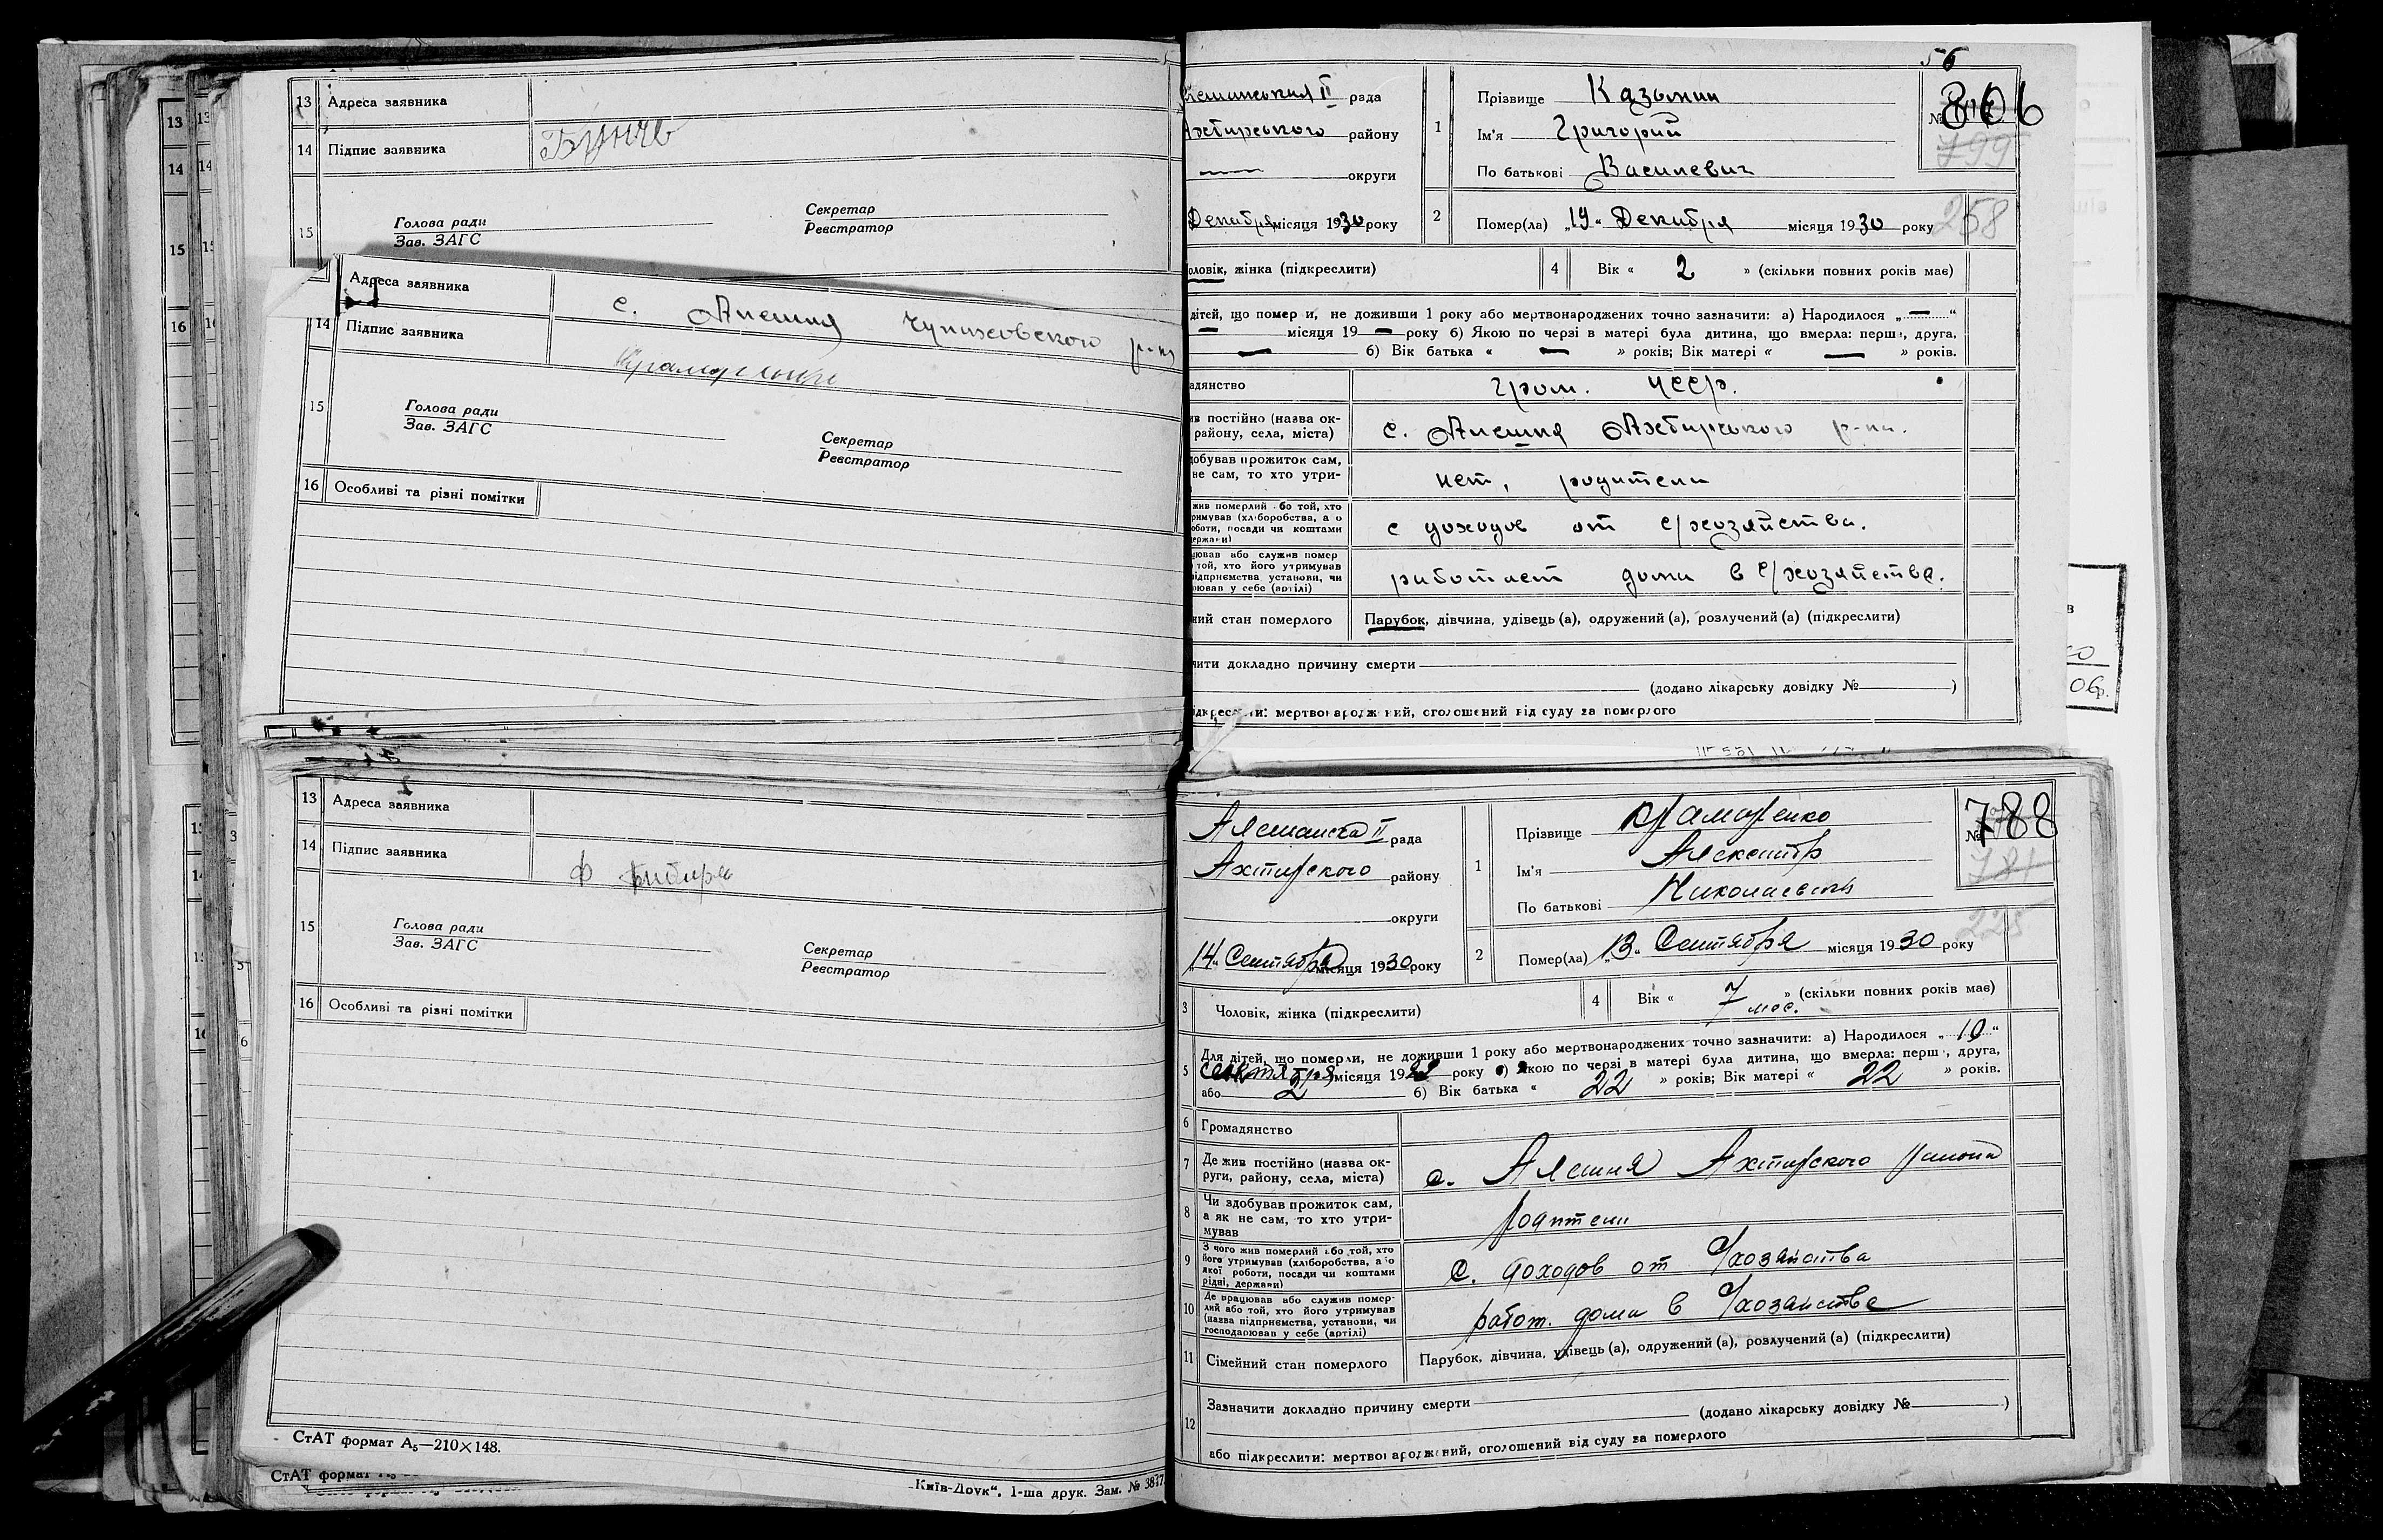 13 Адреса заявника
14 Підпис заявника
15 Голова ради
Зав. ЗАГС
Секретар
Реєстратор
Адреса заявника с. Алешня Чупиховского р-на
14 Підпис заявника
15 Голова ради
Зав. ЗАГС
Секретар
Реєстратор
16 Особливі та різні помітки
13 Адреса заявника
14 Підпис заявника
15 Голова ради
Зав. ЗАГС
Секретар
Реєстратор
16 Особливі та різні помітки
СтАТ формат А₅—210×148.
СтАТ формат
„Київ-Друк“. 1-ша друк. Зам. № 3877
56
рада
району
округи
Декабря місяця 1930 року
1 Прізвище Казьмин
Ім'я Григорий
По батькові Василевич
№ 806
799
2 Помер(ла) „19“ Декабря місяця 1930 року
258
чоловік, жінка (підкреслити)
4 Вік « 2 » (скільки повних років має)
дітей, що померли, не доживши 1 року або мертвонароджених точно зазначити: а) Народилося „ — “
— місяця 19 — року б) Якою по черзі в матері була дитина, що вмерла: перша, друга,
— б) Вік батька « — » років; Вік матері « — » років.
адянство гром. УССР.
ив постійно (назва ок-
району, села, міста) с. Алешня Ахтирского р-на.
добував прожиток сам,
не сам, то хто утри- нет, родители
жив померлий або той, хто
римував (хліборобства, а о
оботи, посади чи коштами
держави) с доходов от с/хозяйства.
ював або служив помер
той, хто його утримував
підприємства установи, чи
ював у себе (артілі) работает дома в с/хозяйстве.
ний стан померлого Парубок, дівчина, удівець (а), одружений (а), розлучений (а) (підкреслити)
чити докладно причину смерти
(додано лікарську довідку № )
ідкреслити: мертвонароджений, оголошений від суду за померлого
Алешанска II рада
Ахтирского району
округи
„14“ Сентября місяця 1930 року
1 Прізвище Крамаренко
Ім'я
По батькові Николаевич
№ 788
781
225
2 Помер(ла) „13“ Сентября місяця 1930 року
3 Чоловік, жінка (підкреслити)
4 Вік « 7 мес. » (скільки повних років має)
5 Для дітей, що померли, не доживши 1 року або мертвонароджених точно зазначити: а) Народилося „ 10 “
місяця 19 року б) Якою по черзі в матері була дитина, що вмерла: перша, друга,
або 2 б) Вік батька « 22 » років; Вік матері « 22 » років.
6 Громадянство
7 Де жив постійно (назва ок-
руги, району, села, міста) с. Алешня Ахтирского района
8 Чи здобував прожиток сам,
а як не сам, то хто утри-
мував родители
9 З чого жив померлий або той, хто
його утримував (хліборобства, а о
якої роботи, посади чи коштами
рідні, держави) С. доходов от с/хозяйства
10 Де працював або служив помер-
лий або той, хто його утримував
(назва підприємства, установи, чи
господарював у себе (артілі) работ. дома в с/хозяистве
11 Сімейний стан померлого Парубок, дівчина, удівець (а), одружений (а), розлучений (а) (підкреслити)
12 Зазначити докладно причину смерти
(додано лікарську довідку № )
або підкреслити: мертвонароджений, оголошений від суду за померлого